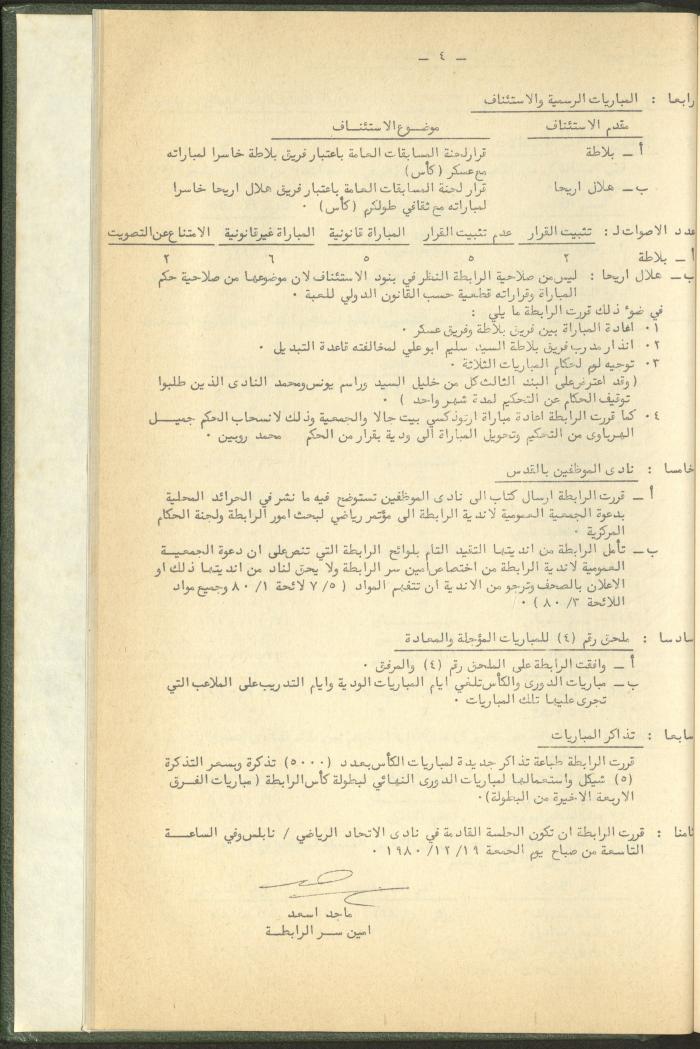 ـ ٤ ـ
رابعا : المباريات الرسمية والاستئناف
مقدم الاستئناف موضوع الاستئناف
أ ـ بلاطة قرار لجنة المسابقات العامة باعتبار فريق بلاطة خاسرا لمباراته
مع عسكر (كأس)
ب ـ هلال اريحا قرار لجنة المسابقات العامة باعتبار فريق هلال اريحا خاسرا
لمباراته مع ثقافي طولكرم (كأس) ٠
عدد الاصوات لـ : تثبيت القرار عدم تثبيت القرار المباراة قانونية المباراة غير قانونية الامتناع عن التصويت
أ ـ بلاطة ٢ ٥ ٥ ٦ ٢
ب ـ هلال اريحا : ليس من صلاحية الرابطة النظر في بنود الاستئناف لان موضوعها من صلاحية حكم
المباراة وقراراته قطعية حسب القانون الدولي للعبة ٠
في ضوء ذلك قررت الرابطة ما يلي :
٠١ اعادة المباراة بين فريق بلاطة وفريق عسكر ٠
٠٢ انذار مدرب فريق بلاطة السيد سليم ابو علي لمخالفته قاعدة التبديل ٠
٠٣ توجيه لوم لحكام المباريات الثلاثة ٠
( وقد اعترض على البند الثالث كل من خليل السيد وراسم يونس ومحمد النادى الذين طلبوا
توقيف الحكام عن التحكيم لمدة شهر واحد ) ٠
٠٤ كما قررت الرابطة اعادة مباراة ارثوذكسي بيت جالا والجمعية وذلك لانسحاب الحكم جميـــل
الهرباوى من التحكيم وتحويل المباراة الى ودية بقرار من الحكم محمد روبين ٠
خامسا : نادى الموظفين بالقدس
أ ـ قررت الرابطة ارسال كتاب الى نادى الموظفين تستوضح فيه ما نشر في الجرائد المحلية
بدعوة الجمعية العمومية لاندية الرابطة الى مؤتمر رياضي لبحث امور الرابطة ولجنة الحكام
المركزية ٠
ب ـ تأمل الرابطة من انديتها التقيد التام بلوائح الرابطة التي تنص على ان دعوة الجمعيــة
العمومية لاندية الرابطة من اختصاص امين سر الرابطة ولا يحق لناد من انديتها ذلك او
الاعلان بالصحف وترجو من الاندية ان تتفهم المواد ( ٧/٥ لائحة ٨٠/١ وجميع مواد
اللائحة ٨٠/٣ ) ٠
سادسا : ملحق رقم (٤) للمباريات المؤجلة والمعادة
أ ـ وافقت الرابطة على الملحق رقم (٤) والمرفق ٠
ب ـ مباريات الدورى والكأس تلغي ايام المباريات الودية وايام التدريب على الملاعب التي
تجرى عليها تلك المباريات ٠
سابعا : تذاكر المباريات
قررت الرابطة طباعة تذاكر جديدة لمباريات الكأس بعدد (٥٠٠٠) تذكرة وبسعر التذكرة
(٥) شيكل واستعمالها لمباريات الدورى النهائي لبطولة كأس الرابطة (مباريات الفــرق
الاربعة الاخيرة من البطولة)٠
ثامنا : قررت الرابطة ان تكون الجلسة القادمة في نادى الاتحاد الرياضي / نابلس وفي الساعـــة
التاسعة من صباح يوم الجمعة ١٩/ ١٢/ ١٩٨٠ ٠
ماجد اسعد
امين ســر الرابطــة